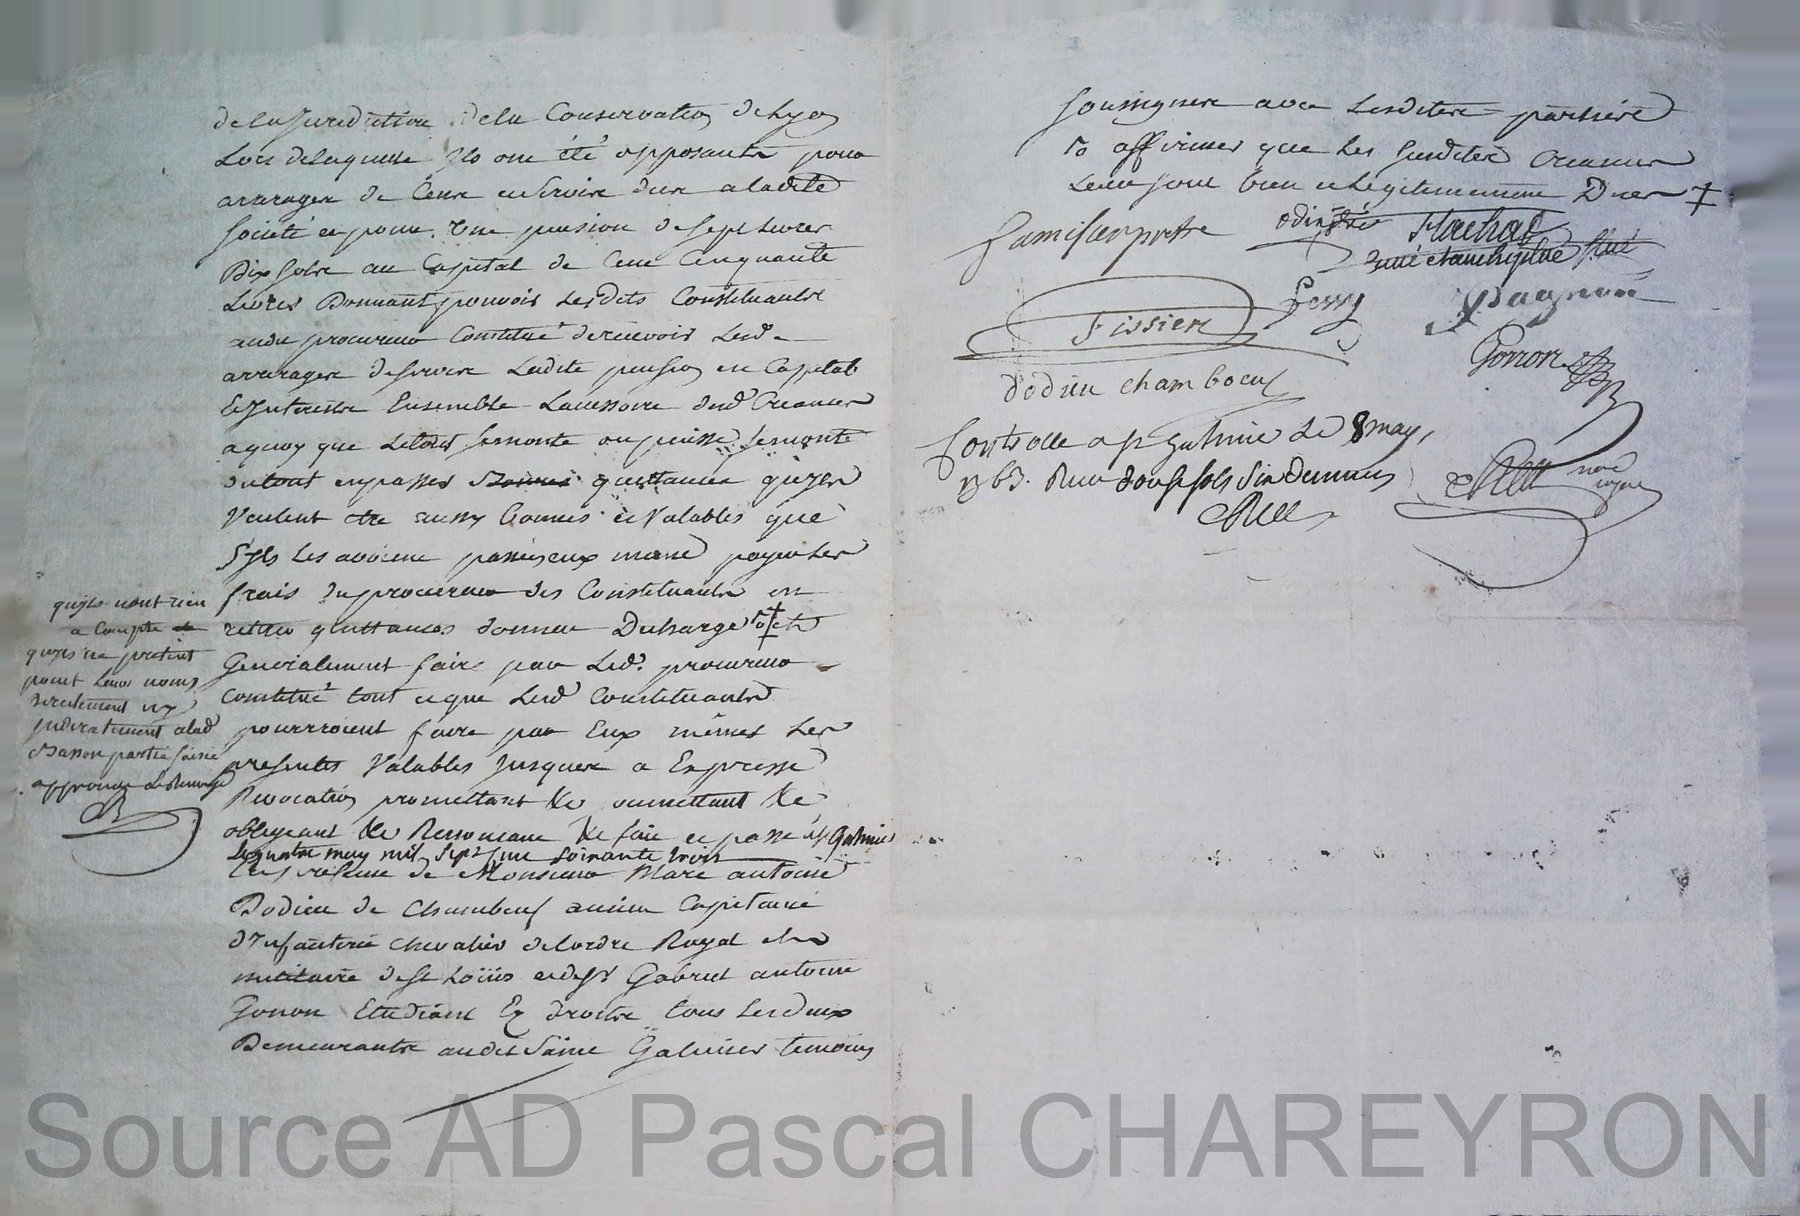 de la Juridiction de la Conservation de Lyon
Lors de laquelle Ils ont été opposants pour
arrerages de Cens et servis dus a ladite
société et pour Une pension de sept Livres
Dix sols au Capital de Cent Cinquante
Livres Donnant pouvoir Lesdits Constituants
audit procureur Constitué de recevoir Lesd.
arrerages de servis Ladite pension en Capital
Et Interests Ensemble Laccessoire desd Creances
a quoy que Letout se monte ou puisse se monté
du tout en passer quittances qu'yls
Veulent etre aussy bonnes et Valables que
S'yls Les avoient passés eux meme payer Les
frais du procureur des Constituants en
retirer quittances donner Decharge &
Generalement faire par Led. procureur
Constitué tout ce que Lesd Constituants
pourroient faire par Eux mêmes Les
presentes Valables Jusques a Expresse
Revocation promettant &c soumettant &c
obligeant &c Renonceant &c fait et passé a St Galmier
Le quatre may mil sept cent soixante trois
En presence de Monsieur Marc antoine
Dodieu de Chambeuf ancien Capitaine
d'Infanterie chevalier de lordre Royal et
militaire de St Loüis et de Sr Gabriel antoine
Gonon Etudiant En droits tous Les deux
Demeurants audit Saint Galmier temoins
qu'yls n'ont rien
a Compte
qu'yls ne pretent
point Leur noms
directement ny
Indiratement alad
partie saisie
approuvé le Renvoyé
soussignere avec Lesdites parties
& affirmer que Les susdites Creances
Leur sont bien et Legitimement Dues
odin
Flachat
Fessy
Pagnon
Tissier
Gonon
dodieu chamboeuf
Controlle a St Galmier Le 8 may
1763. Recu douse sols six Deniers